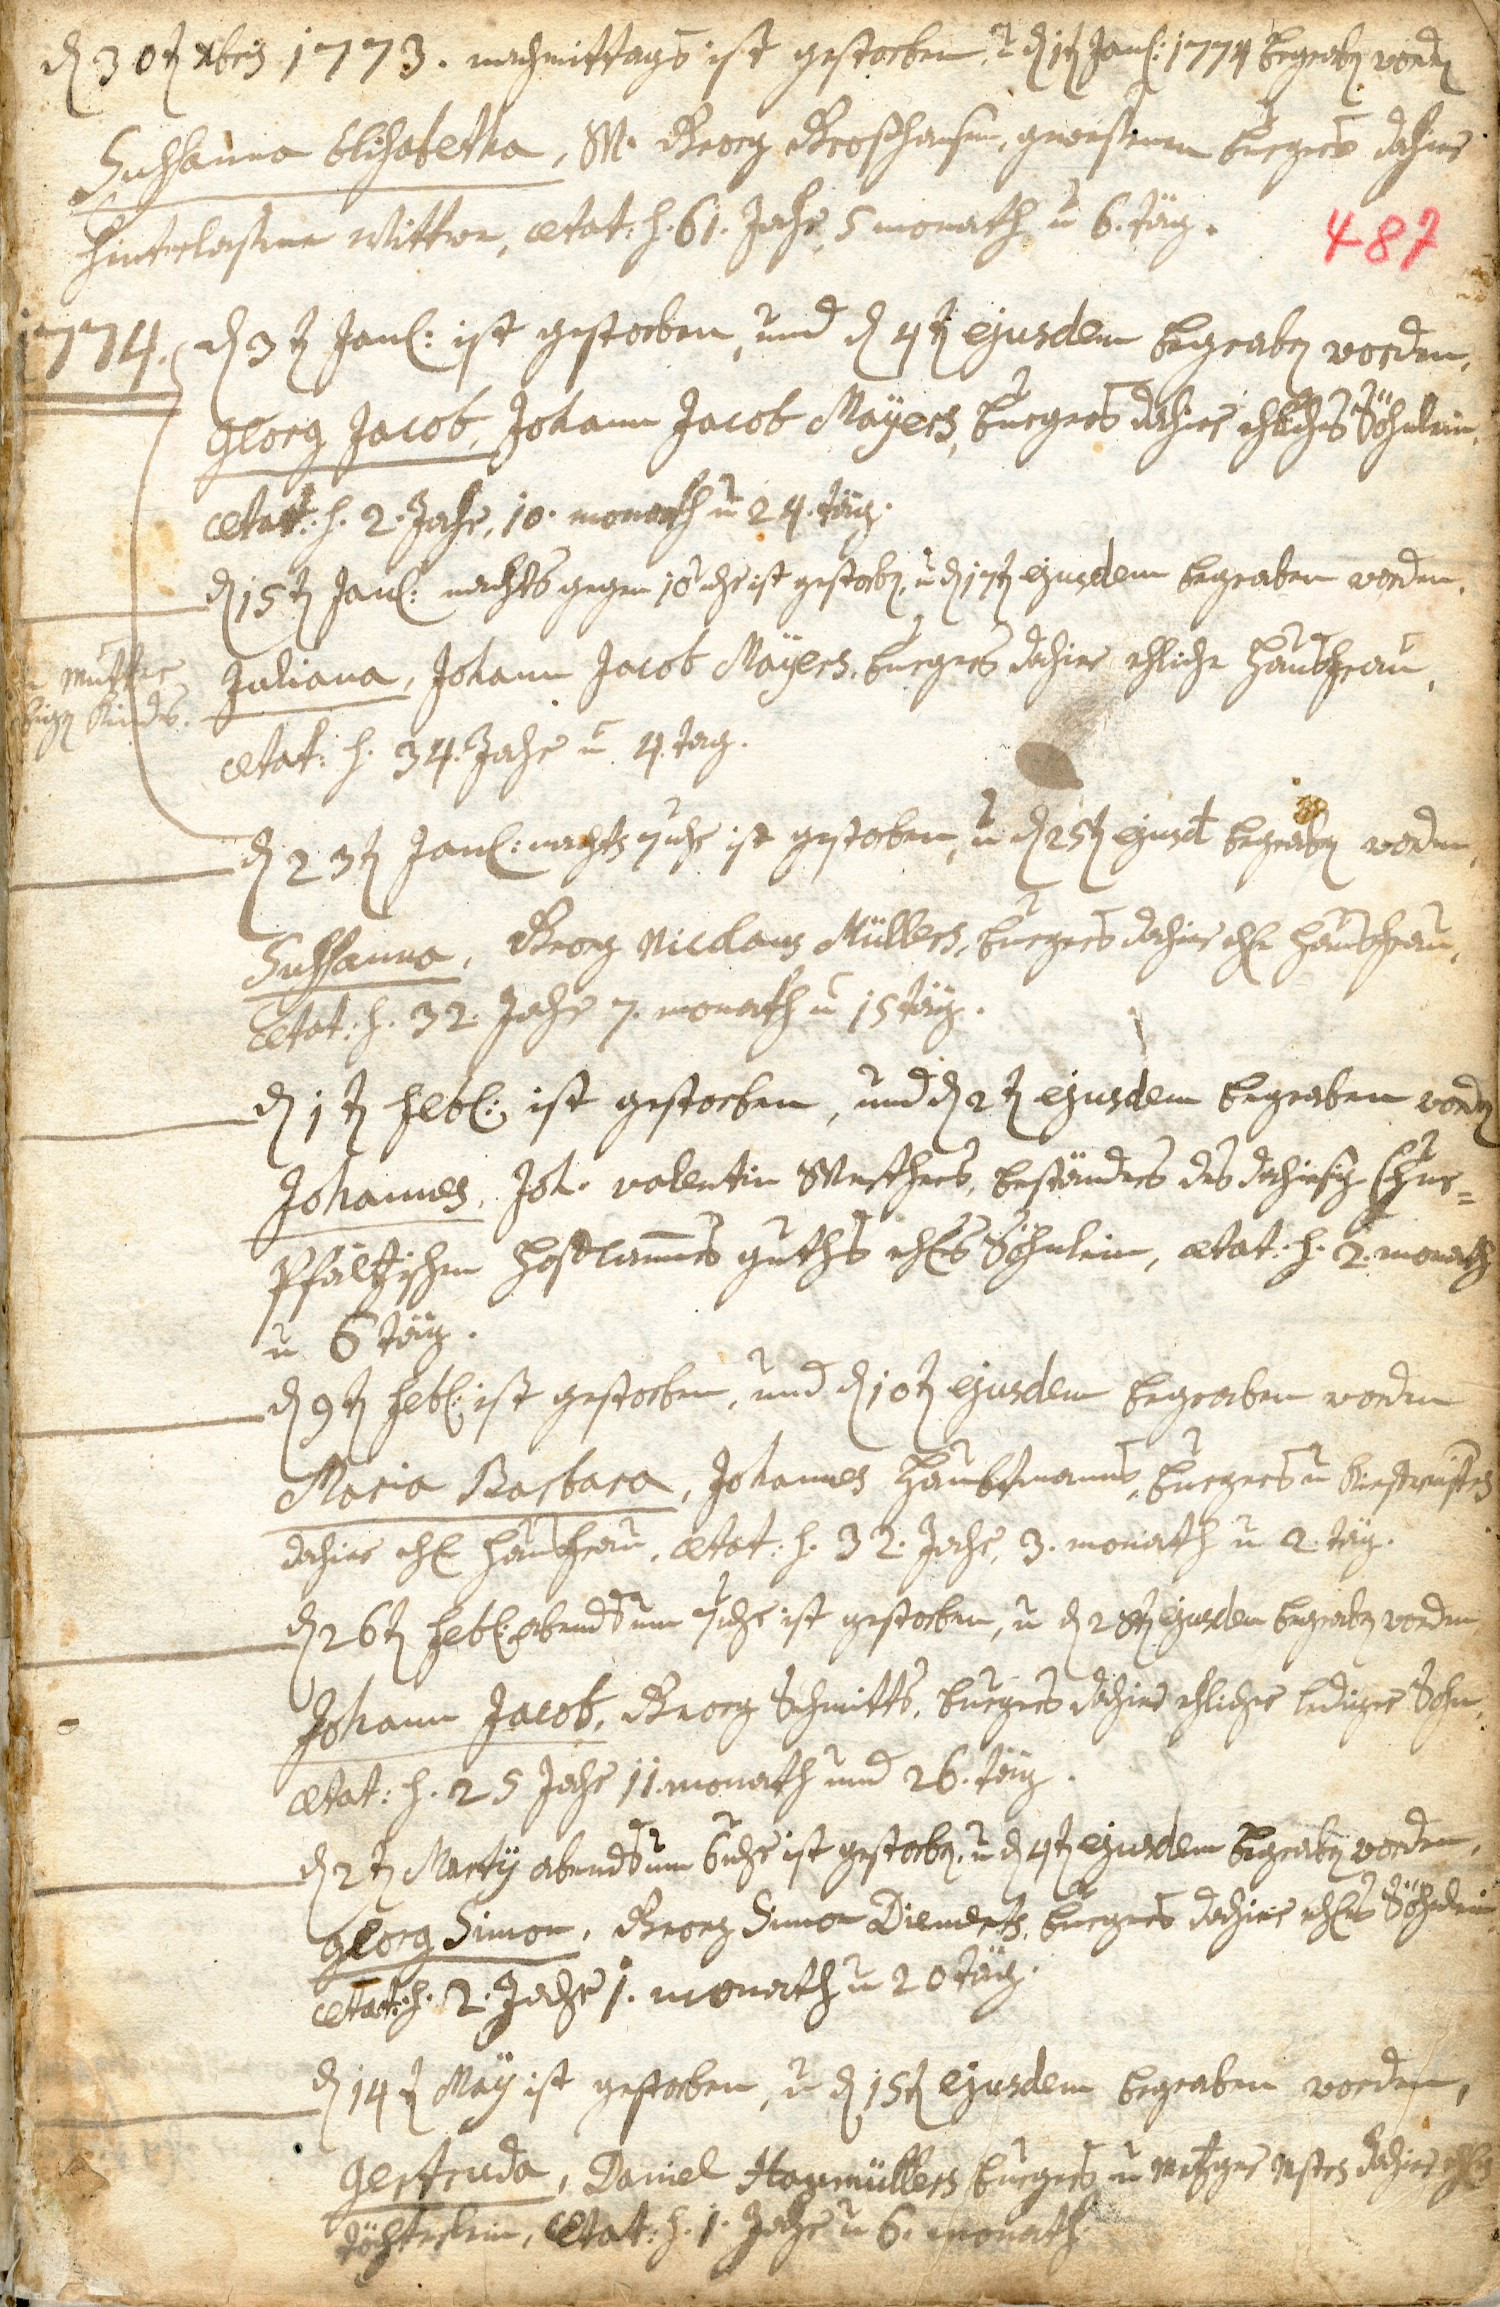 d 30t Xbris 1773. nachmittags ist gestorben, u d 1t Janˡ: 1774 begrabn wordn
Sussanna Elisabetha, Mr. Georg Großhansen, gewesenen burgers dahier
hinterlassene Wittwe, ætat: h. 61. Jahr, 5 monath u 6. täg.
487
1774. d 3t Janˡ: ist gestorben, und d 4t ejusdem begrabn worden,
Georg Jacob, Johann Jacob Mäyers, burgers dahier ehliches Söhnlein,
ætat: h. 2. Jahr, 10. monath u 24. täg.
d 15t Janˡ: nachts gegen 10 uhr ist gestorbn, u d 17t ejusdem begraben worden,
mutter
Kinds.
Juliana, Johann Jacob Mäyers, burgers dahier ehliche Haußfrau,
ætat: h. 34. Jahr u 4. tag.
d 23t Janˡ: nachts 7 uhr ist gestorben, u d 25t ejusd begrabn worden,
Sussanna, Georg Nicolaus Müllers, burgers dahier ehl Haußfrau,
ætat: h. 32. Jahr 7. monath u 15 täg.
d 1t Febˡ: ist gestorben, und d 2t ejusdem begraben wordn
Johannes, Joh. valentin Matthers, beständers des dahiesign Chur=
Pfältzischen guths ehls Söhnlein, ætat: h. 2. monath
u 6 täg.
d 9t Febˡ: ist gestorben, und d 10t ejusdem begraben worden
Maria Barbara, Johannes Haubtmanns, burgers u
dahier ehl Haußfrau, ætat: h. 32. Jahr, 3. monath u 2. täg.
d 26t Febˡ: abends um 7 uhr ist gestorben, u d 28t ejusdem begrabn worden,
Johann Jacob, Georg Schmitts, burgers dahier ehlicher lediger Sohn,
ætat: h. 25 Jahr 11. monath und 26. täg.
d 2t Martÿ abends um 6 uhr ist gestorbn, u d 4t ejusdem begrabn worden,
Georg Simon, Georg Simon Diementz, burgers dahier ehls Söhnlein
ætat: h. 2. Jahr 1. monath u 20 täg.
d 14t Maÿ ist gestorben, u d 15t ejusdem begraben worden,
Gertruda, Daniel Haymüllers burgers u Metzger Mstrs dahier
töchterlein, ætat: h. 1. Jahr u 6. monath